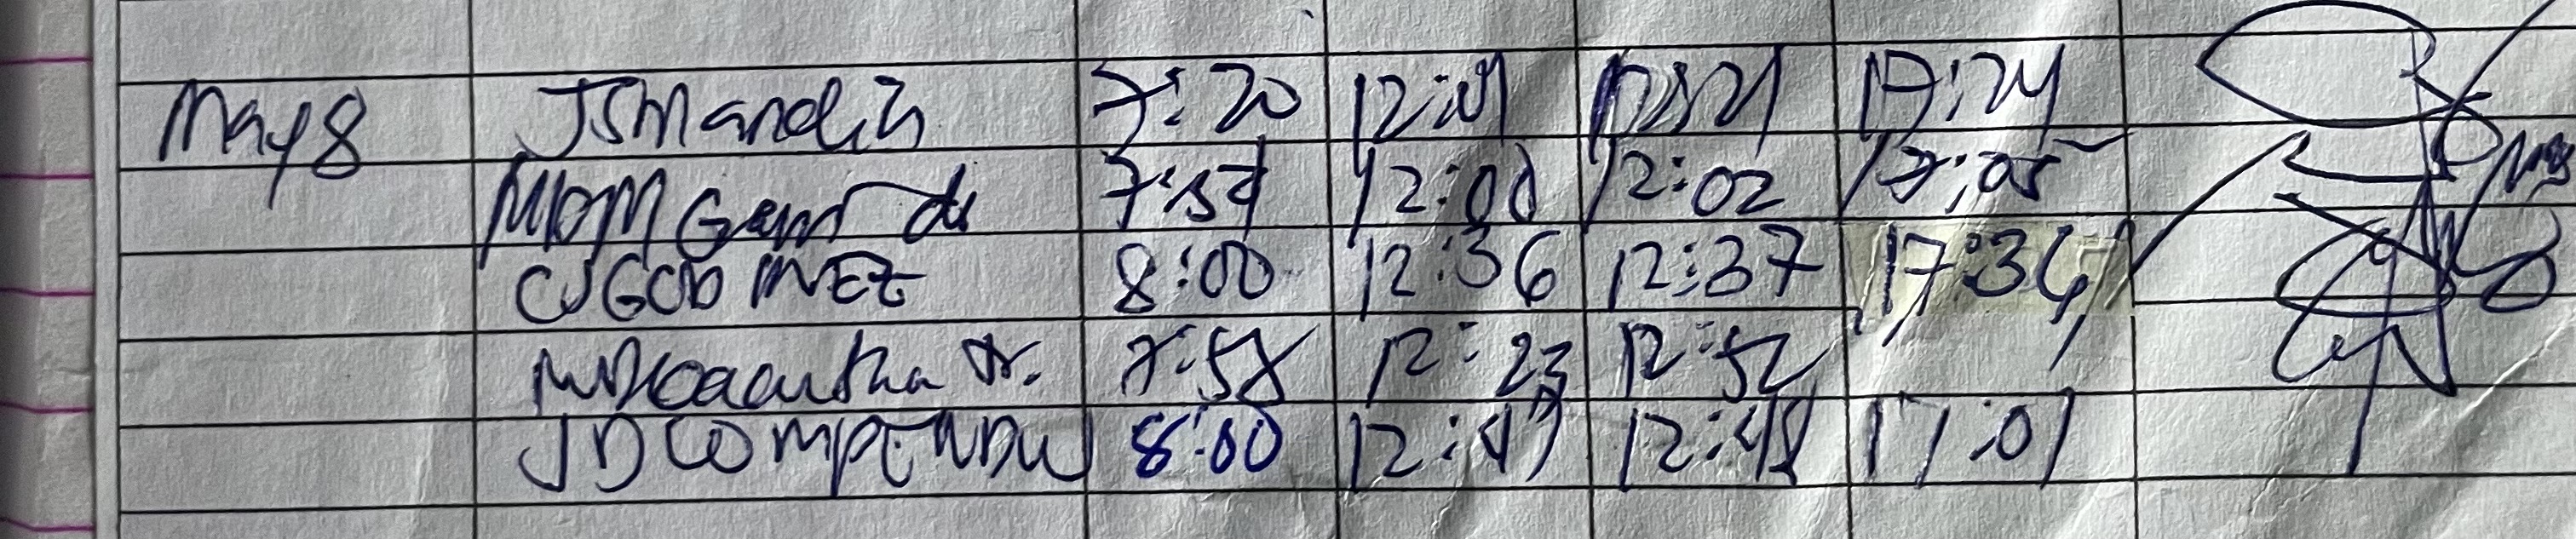 May 8 JSMandin 7:20 12:01 12:21 17:24
MDM 7:57 12:01 12:02 17:05
CJGODINEZ 8:00 12:36 12:37 17:36
Jr. 7:58 12:23 12:52
JD COMPENDIO 8:00 12:47 12:48 17:01